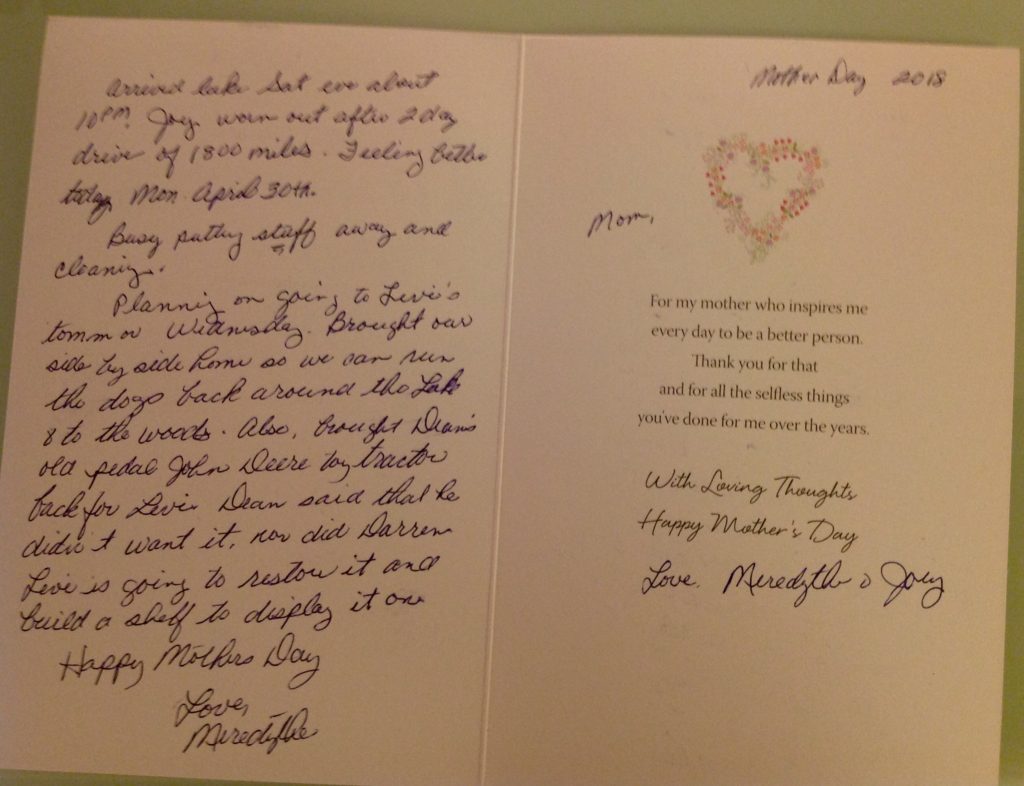 Arrived lake Sat eve about
10PM. Joey worn out after 2 day
drive of 1800 miles. Feeling better
today Mon. April 30th.
Busy putting stuff away and
cleaning.
Planning on going to Levi's
tommor Wednesday. Brought our
side by side home so we can run
the dogs back around the Lake
& to the woods. Also, brought Dean's
old pedal John Deere toy tractor
back for Levi. Dean said that he
didn't want it, nor did Darren
Levi is going to restore it and
build a shelf to display it on.
Happy Mothers Day
Love,
Meredythe
Mother Day 2018
Mom,
For my mother who inspires me
every day to be a better person.
Thank you for that
and for all the selfless things
you've done for me over the years.
With Loving Thoughts
Happy Mother's Day
Love, Meredythe & Joey